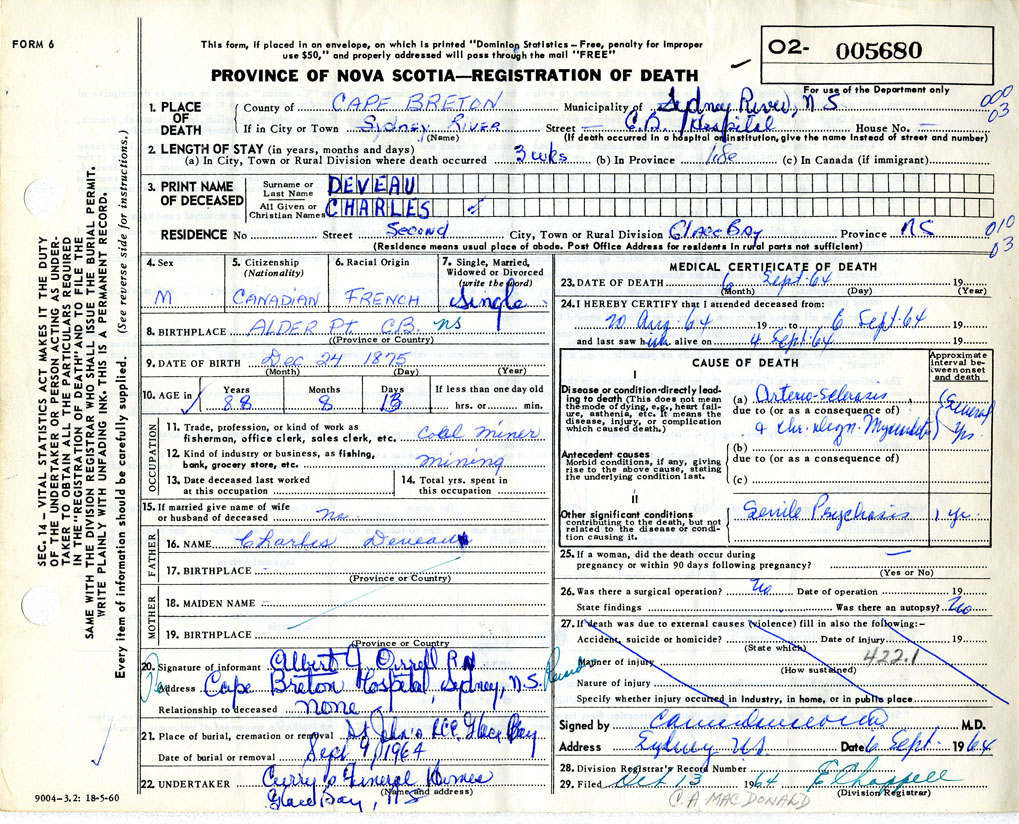 FORM 6
This form, if placed in an envelope, on which is printed "Dominion Statistics – Free, penalty for improper
use $50," and properly addressed will pass through the mail "FREE"
O2- 005680
For use of the Department only
PROVINCE OF NOVA SCOTIA—REGISTRATION OF DEATH
1. PLACE OF DEATH
County of CAPE BRETON Municipality of Sydney River, N.S 000 03
If in City or Town SYDNEY RIVER Street C.B. Hospital House No. —
(Name) (If death occurred in a hospital or institution, give the name instead of street and number)
2. LENGTH OF STAY (in years, months and days)
(a) In City, Town or Rural Division where death occurred 3 wks (b) In Province life (c) In Canada (if immigrant)
3. PRINT NAME OF DECEASED
Surname or Last Name DEVEAU
All Given or Christian Names CHARLES
RESIDENCE No Street Second City, Town or Rural Division Glace Bay Province NS 010 03
(Residence means usual place of abode. Post Office Address for residents in rural parts not sufficient)
SEC. 14 – VITAL STATISTICS ACT MAKES IT THE DUTY
OF THE UNDERTAKER OR PERSON ACTING AS UNDER-
TAKER TO OBTAIN ALL THE PARTICULARS REQUIRED
IN THE "REGISTRATION OF DEATH" AND TO FILE THE
SAME WITH THE DIVISION REGISTRAR WHO SHALL ISSUE THE BURIAL PERMIT.
WRITE PLAINLY WITH UNFADING INK. THIS IS A PERMANENT RECORD.
Every item of information should be carefully supplied. (See reverse side for instructions.)
4. Sex
M
5. Citizenship
(Nationality)
CANADIAN
6. Racial Origin
FRENCH
7. Single, Married,
Widowed or Divorced
(write the word)
Single
8. BIRTHPLACE ALDER Pt. C.B. NS
(Province or Country)
9. DATE OF BIRTH Dec 24 1875
(Month) (Day) (Year)
10. AGE in
Years 88
Months 8
Days 13
If less than one day old
hrs. or min.
OCCUPATION
11. Trade, profession, or kind of work as
fisherman, office clerk, sales clerk, etc. Coal Miner
12. Kind of industry or business, as fishing,
bank, grocery store, etc. Mining
13. Date deceased last worked
at this occupation
14. Total yrs. spent in
this occupation
15. If married give name of wife
or husband of deceased
FATHER
16. NAME Charles Deveau
17. BIRTHPLACE
(Province or Country)
MOTHER
18. MAIDEN NAME
19. BIRTHPLACE
(Province or Country
20. Signature of informant Albert J. Orrell RN
Address Cape Breton Hospital, Sydney, N.S.
Relationship to deceased none
21. Place of burial, cremation or removal St John's Glace Bay
Date of burial or removal Sept 9, 1964
22. UNDERTAKER Curry's Funeral Homes
(Name and address)
Glace Bay, NS
9004-3.2: 18-5-60
MEDICAL CERTIFICATE OF DEATH
23. DATE OF DEATH 6 Sept. 64 19
(Month) (Day) (Year)
24. I HEREBY CERTIFY that I attended deceased from:
20 Aug. 64 19 to 6 Sept. 64 19
and last saw him alive on 4 Sept. 64 19
CAUSE OF DEATH
Approximate
interval be-
tween onset
and death
I
Disease or condition directly lead-
ing to death (This does not mean
the mode of dying, e.g., heart fail-
ure, asthenia, etc. It means the
disease, injury, or complication
which caused death.)
(a) Arterio-sclerosis
due to (or as a consequence of)
& chr. degn. Myocarditis
Several yrs.
(b)
due to (or as a consequence of)
(c)
Antecedent causes
Morbid conditions, if any, giving
rise to the above cause, stating
the underlying condition last.
II
Other significant conditions
contributing to the death, but not
related to the disease or condi-
tion causing it.
Senile Psychosis 1 yr.
25. If a woman, did the death occur during
pregnancy or within 90 days following pregnancy? —
(Yes or No)
26. Was there a surgical operation? No Date of operation 19
State findings Was there an autopsy? No
27. If death was due to external causes (violence) fill in also the following:–
Accident, suicide or homicide? Date of injury 19
(State which)
Manner of injury 422.1
(How sustained)
Nature of injury
Specify whether injury occurred in industry, in home, or in public place
Signed by M.D.
Address Sydney NS Date 6 Sept. 1964
28. Division Registrar's Record Number
29. Filed Oct 13 1964 E Chappell
(Division Registrar)
C.A MACDONALD